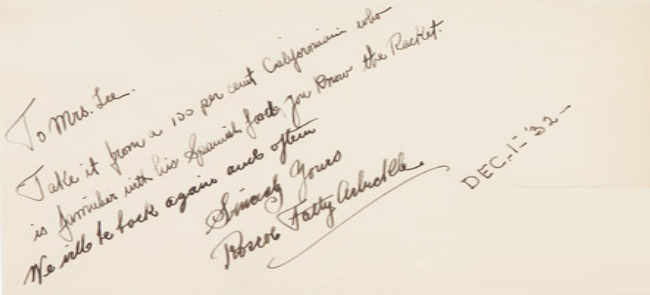 To Mrs. Lee.
Take it from a 100 per cent Californian who
is familiar with his Spanish food, you know the Racket.
We will be back again and often
Sincerely Yours
Roscoe Fatty Arbuckle
DEC-1-'32-